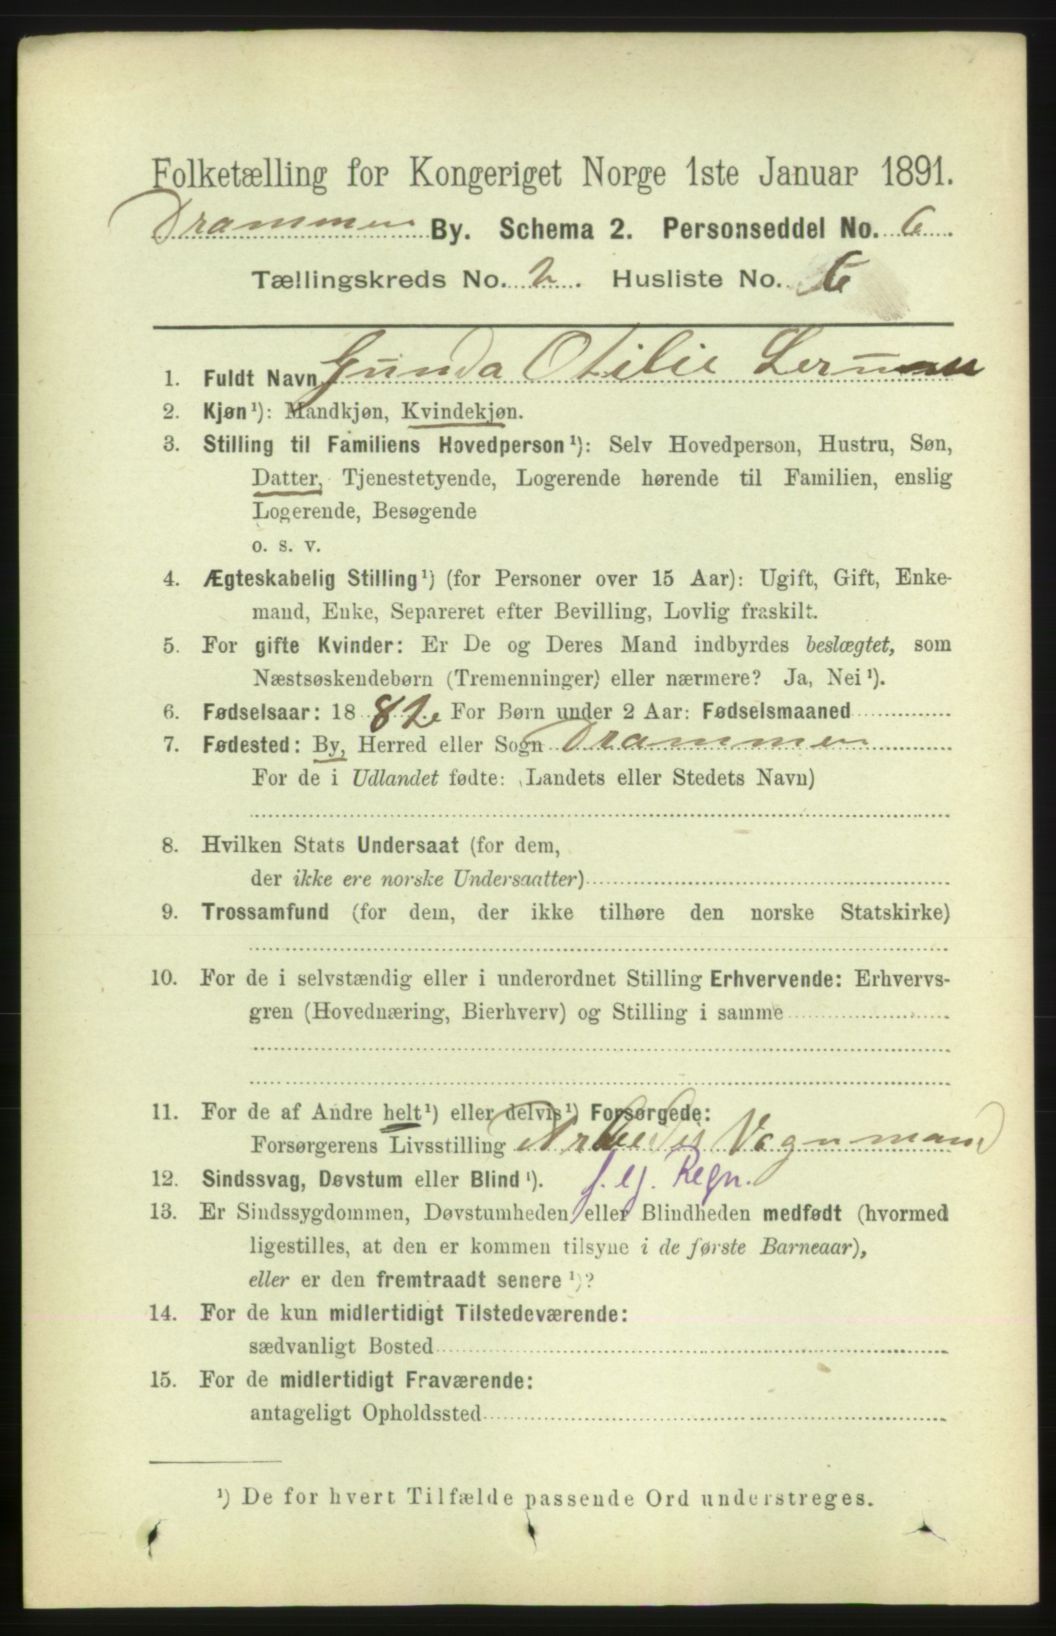 Folketælling for Kongeriget Norge 1ste Januar 1891.
Drammen By. Schema 2. Personseddel No. 6.
Tællingskreds No. 2. Husliste No. 6
1. Fuldt Navn Gunda Otilie
2. Kjøn¹): Mandkjøn, Kvindekjøn.
3. Stilling til Familiens Hovedperson¹): Selv Hovedperson, Hustru, Søn,
Datter, Tjenestetyende, Logerende hørende til Familien, enslig
Logerende, Besøgende
o. s. v.
4. Ægteskabelig Stilling¹) (for Personer over 15 Aar): Ugift, Gift, Enke-
mand, Enke, Separeret efter Bevilling, Lovlig fraskilt.
5. For gifte Kvinder: Er De og Deres Mand indbyrdes beslægtet, som
Næstsøskendebørn (Tremenninger) eller nærmere? Ja, Nei¹).
6. Fødselsaar: 1882. For Børn under 2 Aar: Fødselsmaaned
7. Fødested: By, Herred eller Sogn Drammen
For de i Udlandet fødte: (Landets eller Stedets Navn)
8. Hvilken Stats Undersaat (for dem,
der ikke ere norske Undersaatter)
9. Trossamfund (for dem, der ikke tilhøre den norske Statskirke)
10. For de i selvstændig eller i underordnet Stilling Erhvervende: Erhvervs-
gren (Hovednæring, Bierhverv) og Stilling i samme
11. For de af Andre helt¹) eller delvis¹) Forsørgede:
Forsørgerens Livsstilling Vognmand
f. eg. Regn.
12. Sindssvag, Døvstum eller Blind¹).
13. Er Sindssygdommen, Døvstumheden eller Blindheden medfødt (hvormed
ligestilles, at den er kommen tilsyne i de første Barneaar),
eller er den fremtraadt senere¹)?
14. For de kun midlertidigt Tilstedeværende:
sædvanligt Bosted
15. For de midlertidigt Fraværende:
antageligt Opholdssted
¹) De for hvert Tilfælde passende Ord understreges.